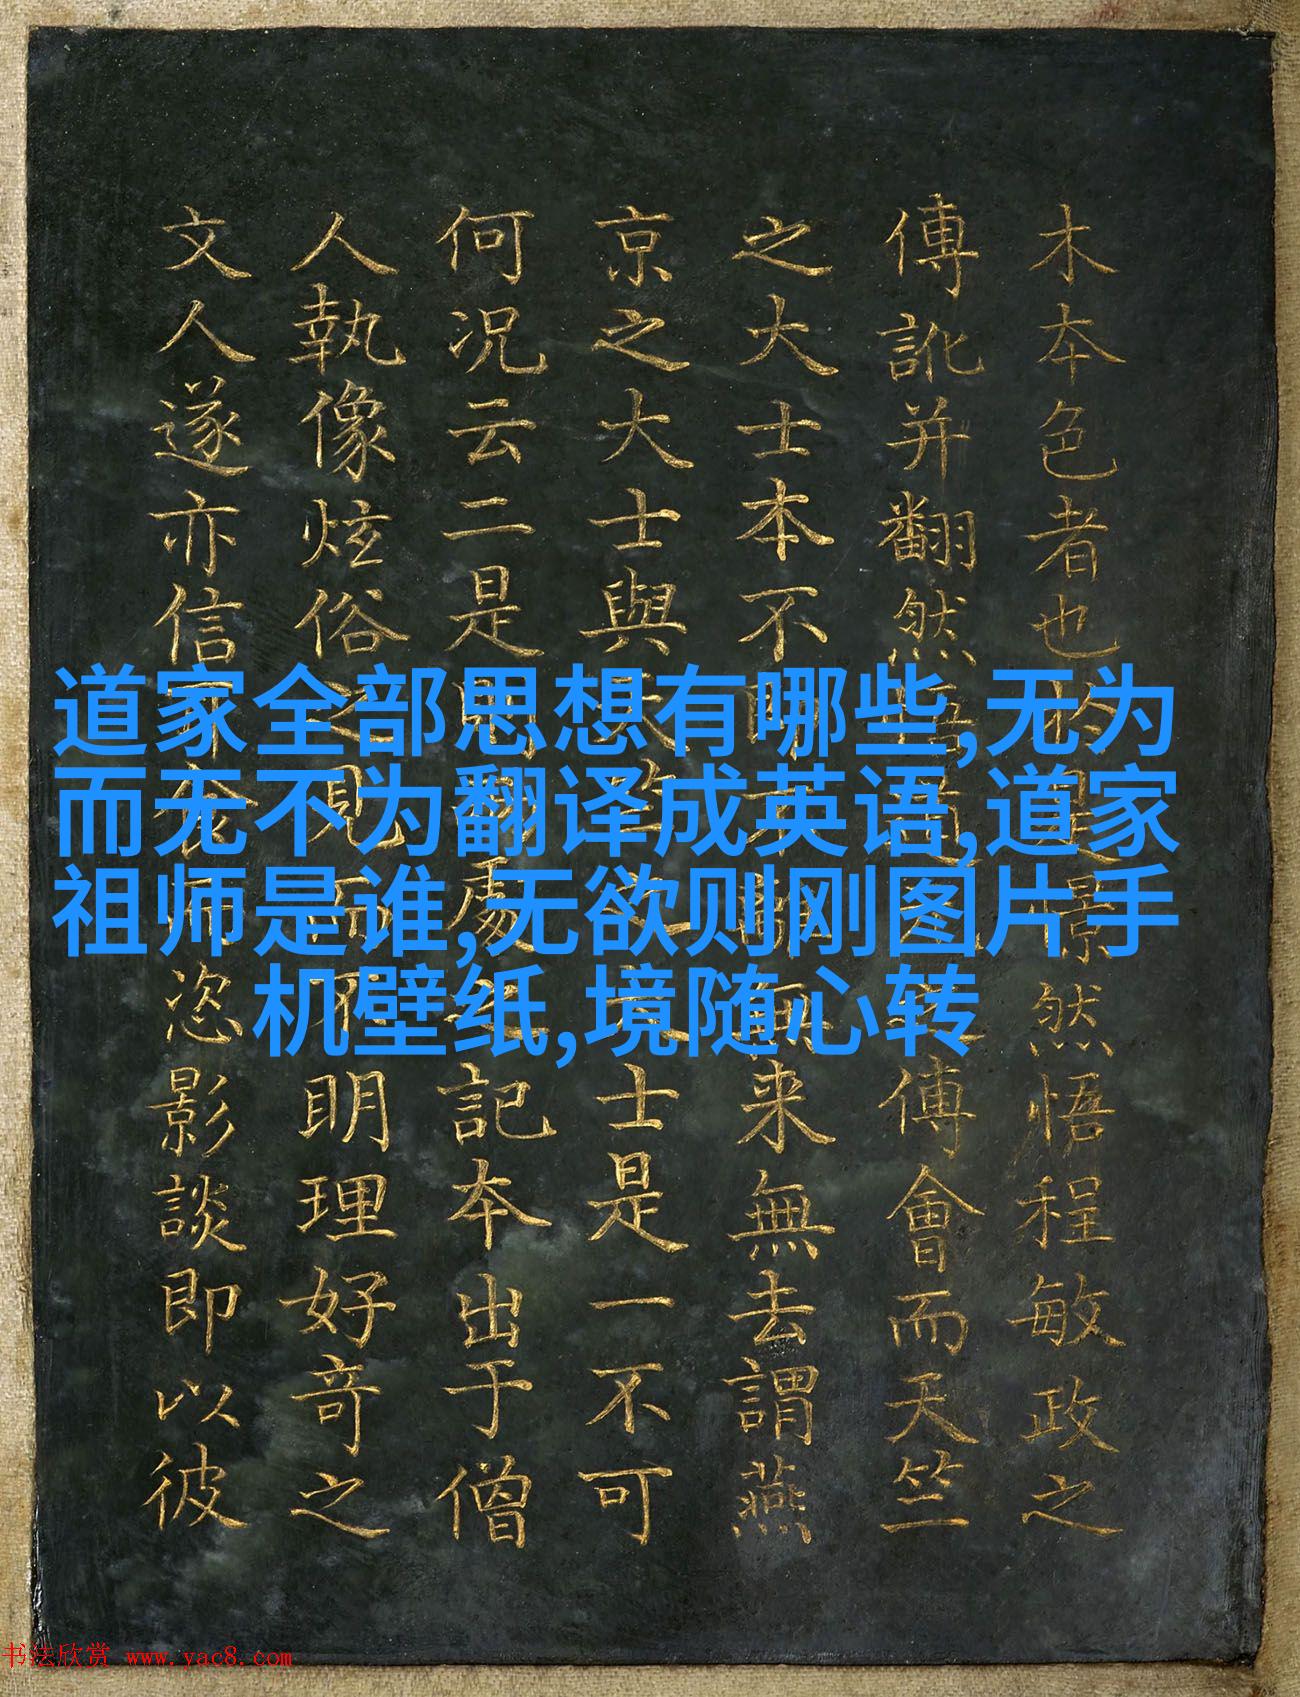 道家全部思想有哪些,无为
而无不为翻译成英语,道家
祖师是谁,无欲则刚图片手
机壁纸,境随心转
木夲色者也憬然悟程敏政之
傳訛并翻然傅會而天竺
之大士本不無来無去謂燕
京之大士與士是一不可
何況云二是處記夲出于僧
人執像炫俗之見而不明理好奇之
文人遂亦信恣影談即以彼
书法欣赏 www.yac8.com